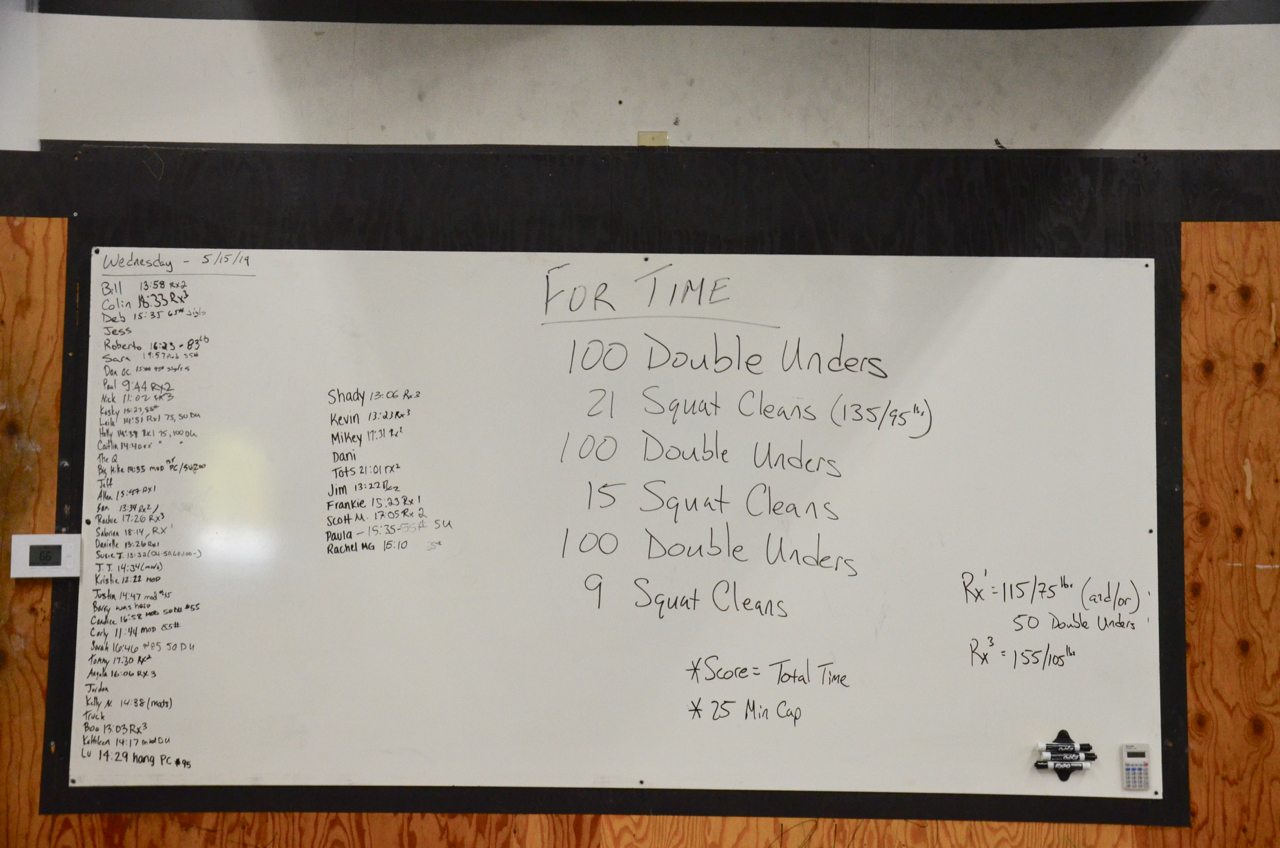 Wednesday - 5/15/19
Bill 13:58 Rx2
Colin 18:33 Rx3
Deb 15:35 65#
Jess
Roberto 16:23 - 83lb
Sara 55#
Dan OC
Paul 9:44 RX2
Nick 11:02
Kosky
75, 50 DU
Holly 14:38 Rx1 75, 100 DU
Caitlin
The Q
Big Mike 14:35 mod PC/
Jeff
RX1
13:34 Rx2
17:26 RX3
Sabrina 18:14, RX1
Danielle 13:26 Rx1
Susie T. 13:32
T.T. 14:34 (mods)
Kristie 12:22 MOD
Justin 14:47 mod #95
Barry was here
Candice 16:58 MOD 50 DU #55
Carly 11:44 MOD 55#
Sarah 16:46 50 DU
Tommy 17:30 RX2
Angela 16:06 RX3
Jordan
Kelly N. 14:38 (mods)
Truck
Boo 13:03 RX3
Kathleen 14:17 DU
Lu 14:29 hang PC #95
Shady 13:06
Kevin 13:23 Rx3
Mikey 17:31 Rx2
Dani
Tots 21:01 rx2
Jim 13:22
Frankie 15:23 Rx1
Scott M. 17:05 Rx 2
Paula - 15:35 - 55# SU
Rachel MG 15:10
FOR TIME
100 Double Unders
21 Squat Cleans (135/95lbs)
100 Double Unders
15 Squat Cleans
100 Double Unders
9 Squat Cleans
*Score = Total Time
* 25 Min Cap
Rx1 = 115/75lbs (and/or)
50 Double Unders
Rx3 = 155/105lb
66
EXPO